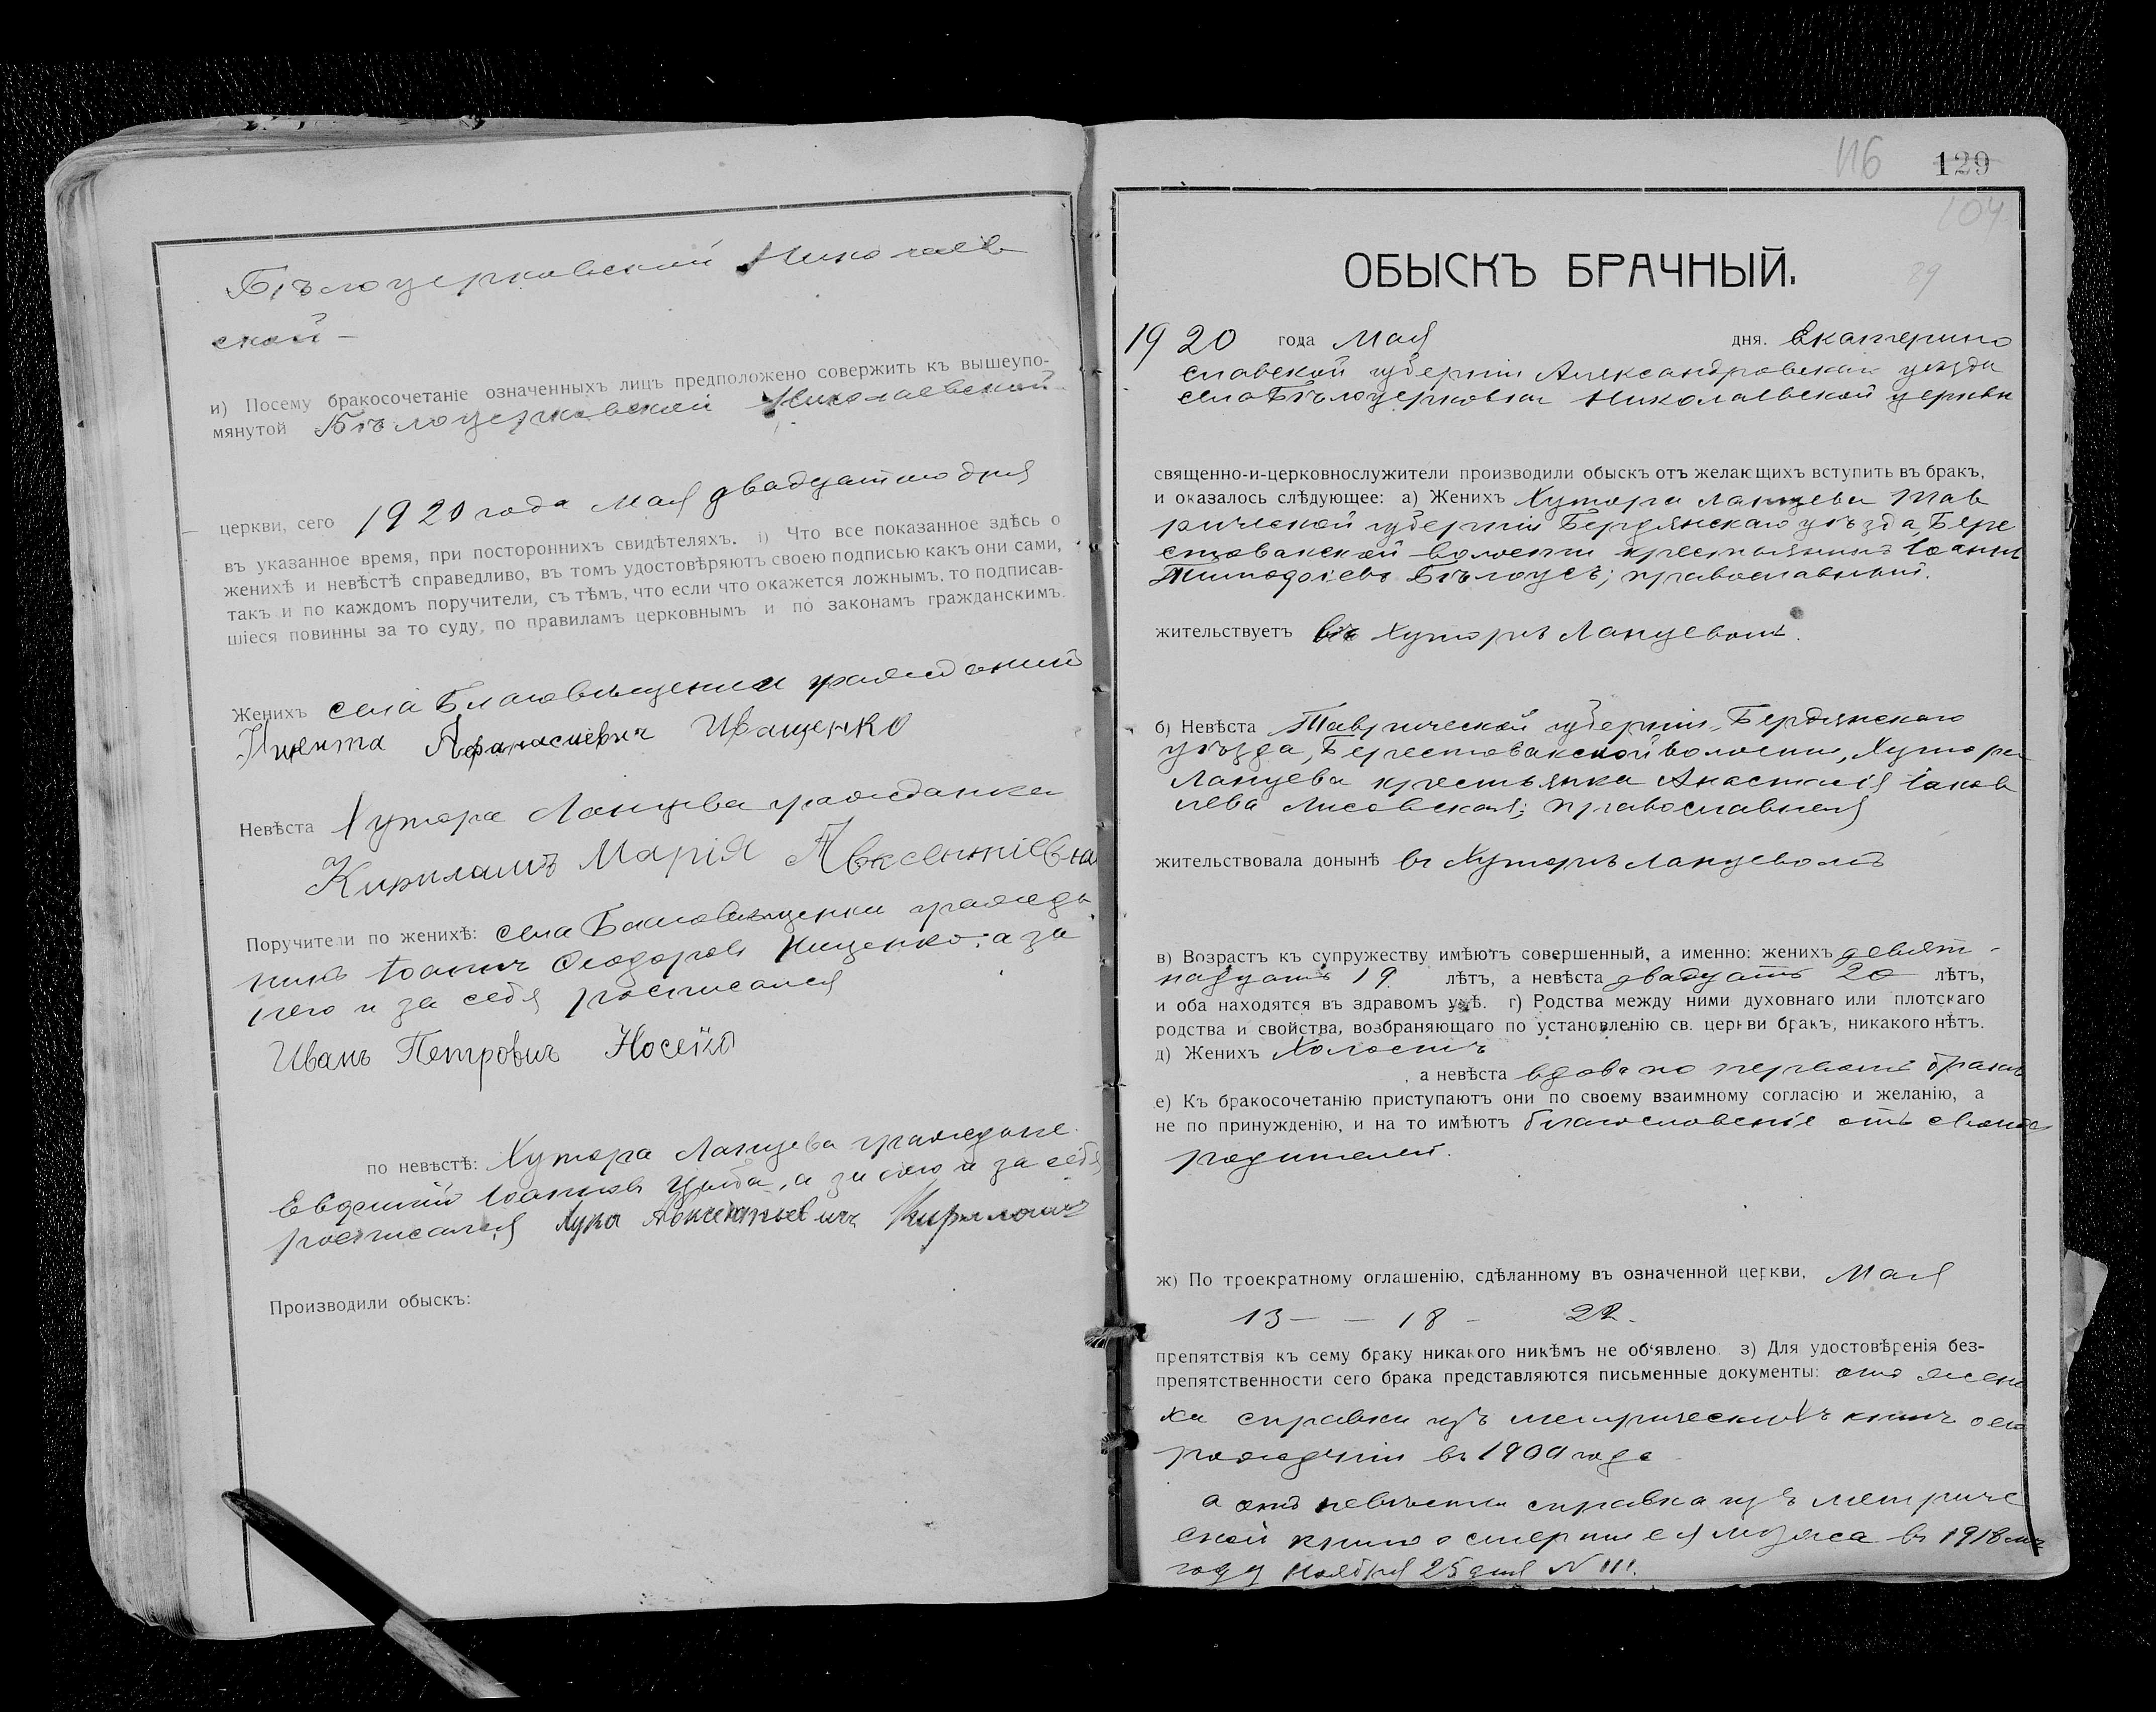 Бѣлоцерковской Николаев
ской –
и) Посему бракосочетаніе означенныхъ лицъ предположено совержить къ вышеупо-
мянутой Бѣлоцерковской Николаевской
церкви, сего 1920 года Мая двадцатого дня
въ указанное время, при постороннихъ свидѣтеляхъ. і) Что все показанное здѣсь о
женихѣ и невѣстѣ справедливо, въ томъ удостовѣряютъ своею подписью какъ они сами,
такъ и по каждомъ поручители, съ тѣмъ, что если что окажется ложнымъ, то подписав-
шіеся повинны за то суду, по правиламъ церковнымъ и по законамъ гражданскимъ.
Женихъ села Благовѣщенки гражданинъ
Никита Афанасиевич Иващенко
Невѣста Хутора Ланцева гражданка
Кириламъ Марія Авксентіевна
Поручители по женихѣ: села Благовѣщенки гражда
нинъ Іоаннъ Ѳеодоровъ Ищенко, а за
него и за себя росписался
Иванъ Петровичъ Носенко
по невѣстѣ: Хутора Ланцева граждане
Евфимій Іоанновъ а за него и за себя
росписался Лука Авксентьевичъ Кириламъ
Производили обыскъ:
116 129
104
ОБЫСКЪ БРАЧНЫЙ.
89
1920 года Мая дня. Екатерино
славской губерніи Александровскаго уѣзда
села Бѣлоцерковки Николаевской церкви
священно-и-церковнослужители производили обыскъ отъ желающихъ вступить въ бракъ,
и оказалось слѣдующее: а) Женихъ Хутора Ланцева Тав
рической губерніи Бердянскаго уѣзда, Бере
стовакской волости крестьянинъ Іоаннъ
Тимофіевъ Бѣлоусъ; православный.
жительствуетъ въ Хуторѣ Ланцевомъ.
б) Невѣста Таврической губерніи, Бердянскаго
уѣзда, Берестовакской волости, Хутора
Ланцева крестьянка Анастасія Іаков
лева Лисовская; православная
жительствовала донынѣ въ Хуторѣ Ланцевомъ
в) Возрастъ къ супружеству имѣютъ совершенный, а именно: женихъ девят-
надцать 19 лѣтъ, а невѣста двадцать 20 лѣтъ,
и оба находятся въ здравомъ умѣ. г) Родства между ними духовнаго или плотскаго
родства и свойства, возбраняющаго по установленію св. церкви бракъ, никакого нѣтъ.
д) Женихъ Холостъ
, а невѣста вдова по первомъ бракѣ
е) Къ бракосочетанію приступаютъ они по своему взаимному согласію и желанію, а
не по принужденію, и на то имѣютъ благословеніе отъ своихъ
родителей.
ж) По троекратному оглашенію, сдѣланному въ означенной церкви, Мая
13 – – 18 – 22.
препятствія къ сему браку никакого никѣмъ не об‘явлено. з) Для удостовѣренія без-
препятственности сего брака представляются письменные документы: отъ жени
ха справки изъ метрическихъ книгъ о его
рожденіи въ 1900 годе
а отъ невѣсты справка изъ метриче
ской книги о смерти ея мужа въ 1918 мъ
году Ноября 25 дня N 111.